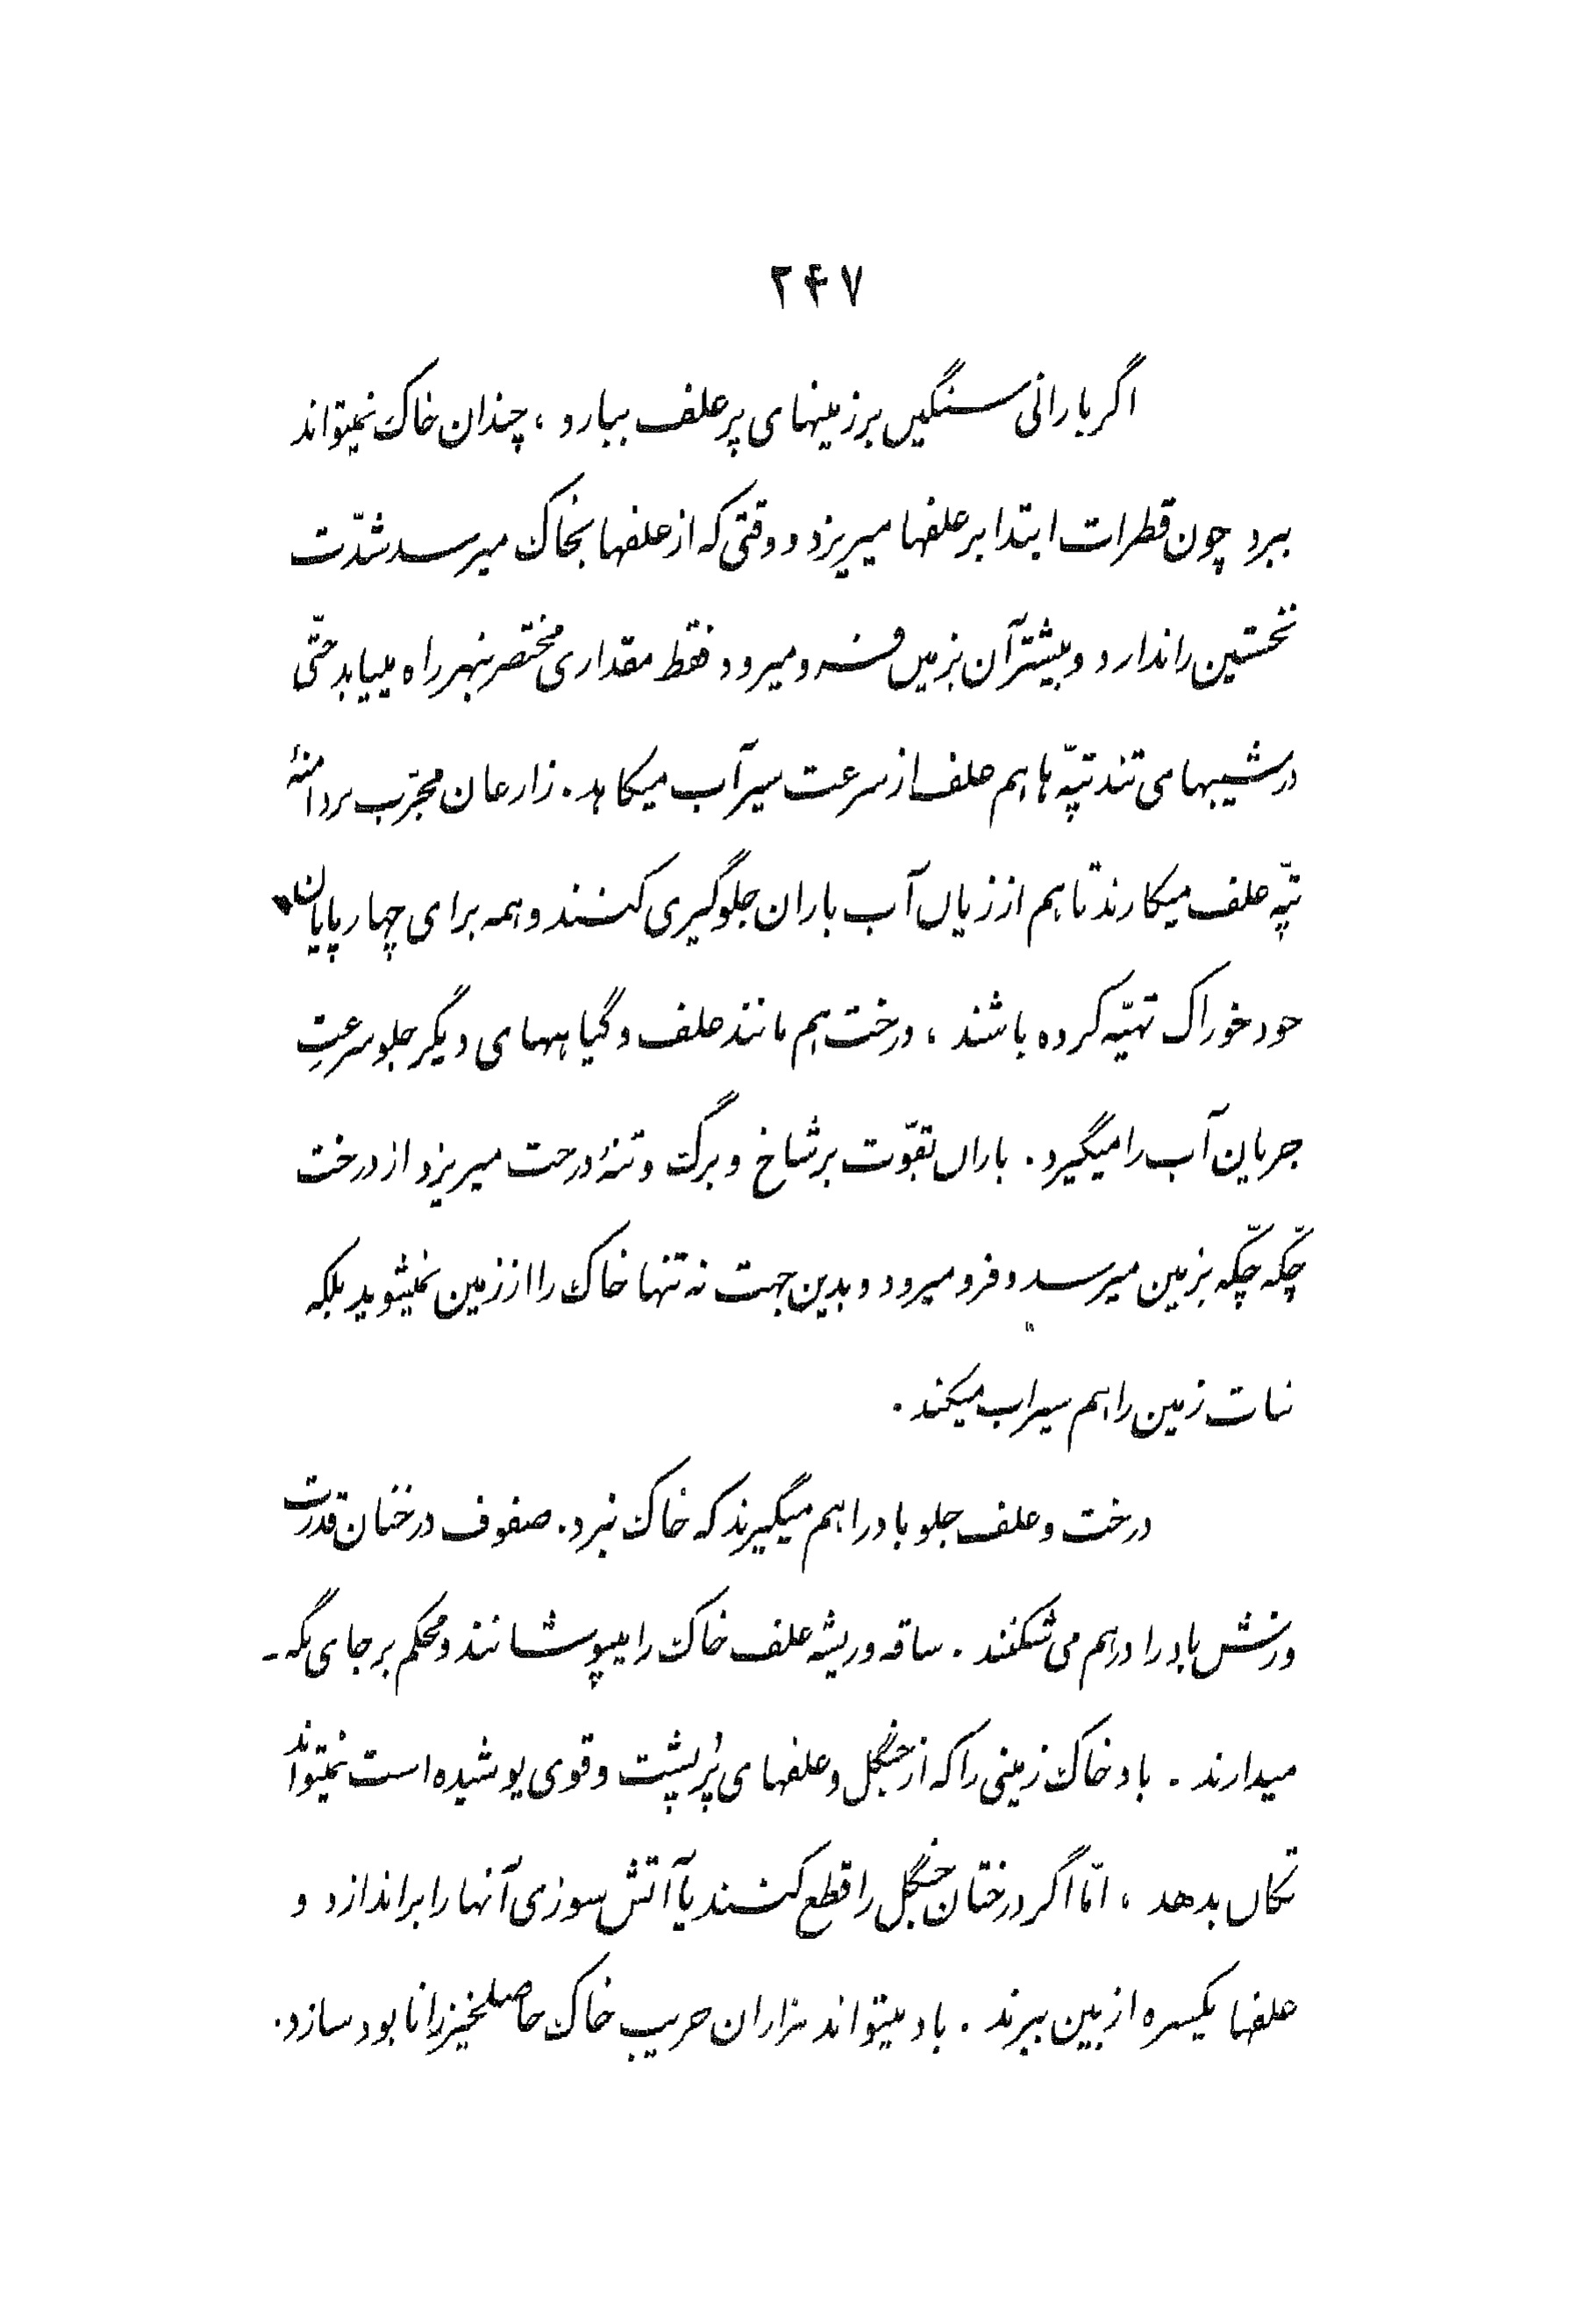 ۲۴۷
اگر بارانی سنگین بر زمینهای پر علف ببارد ، چندان خاک نمیتواند
ببرد چون قطرات ابتدا بر علفها میریزد و وقتی که از علفها بخاک میرسد شدّت
نخستین را ندارد و بیشتر آن بزمین فرو میرود و فقط مقداری مختصر بنهر راه مییابد حتّی
در شیبهای تند تپّه ها هم علف از سرعت سیر آب میکاهد . زارعان مجرّب بر دامنهٔ
تپّه علف میکارند تا هم از زیان آب باران جلوگیری کنند و همه برای چهارپایان
خود خوراک تهیّه کرده باشند ، درخت هم مانند علف و گیاههای دیگر جلو سرعتِ
جریان آب را میگیرد . باران بقوّت بر شاخ و برگ و تنهٔ درخت میریزد از درخت
چّکه چّکه بزمین میرسد و فرو میرود و بدین جهت نه تنها خاک را از زمین نمیشوید بلکه
نبات زمین را هم سیراب میکند .
درخت و علف جلو باد را هم میگیرند که خاک نبرد . صفوف درختان قدرت
وزش باد را درهم می شکنند . ساقه و ریشه علف خاک را میپوشانند و محکم بر جای نگه -
میدارند . باد خاک زمینی را که از جنگل و علفهای پُرپشت و قوی پوشیده است نمیتواند
تکان بدهد ، امّا اگر درختان جنگل را قطع کنند یا آتش سوزی آنها را براندازد و
علفها یکسره از بین ببرند . باد میتواند هزاران جریب خاک حاصلخیز را نابود سازد .